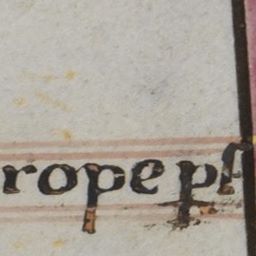 rope pſ